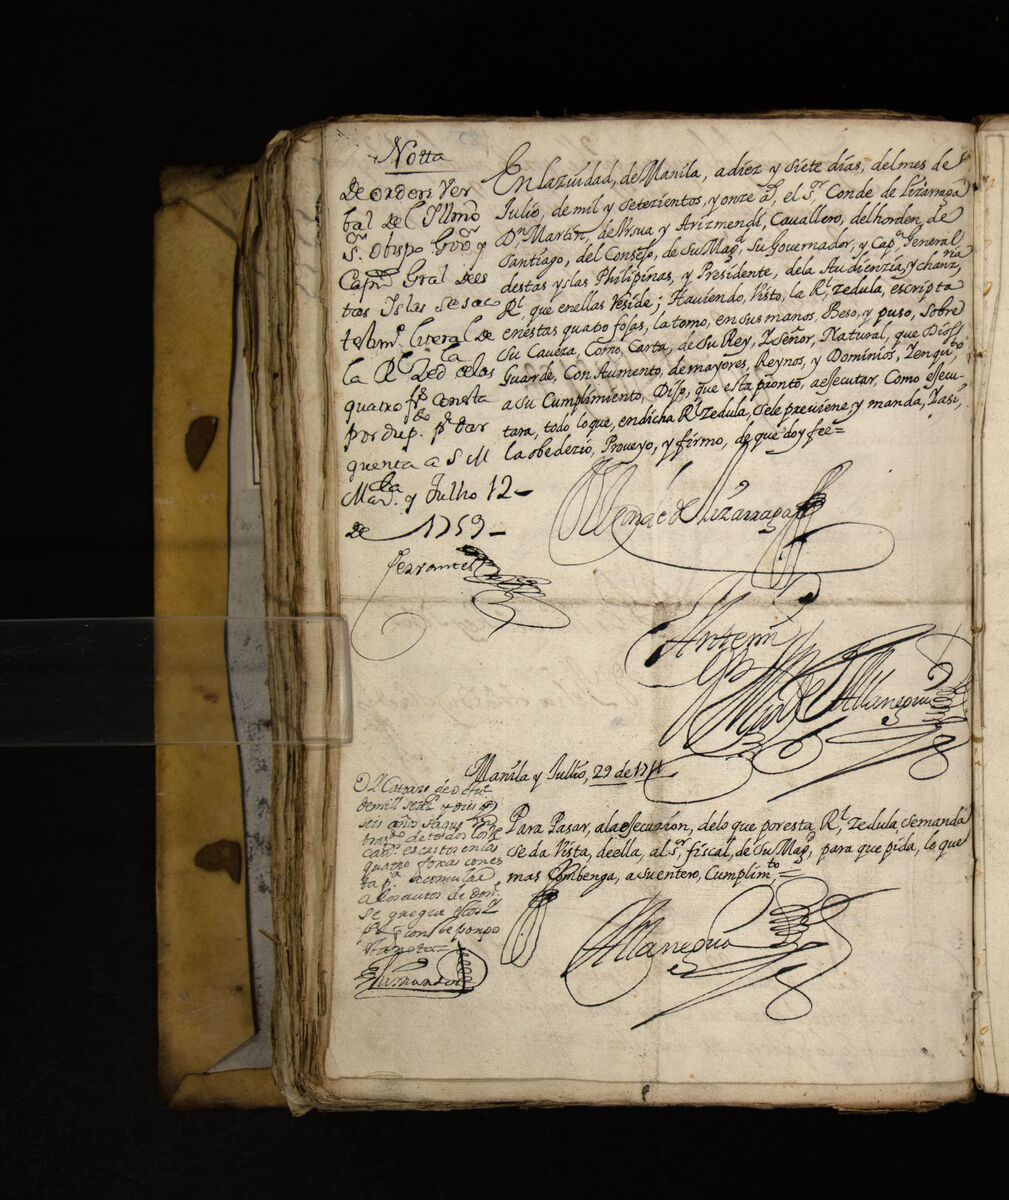 Notta
De orden Ver
bal del Yllmo
Sr. Obispo Govor y
Capn Gral des
tas Islas se saco
testimo literal de
la Rl Ced de las
quatro fs consta
por dup. pa dar
quenta a S M
Mania y Julho 12
de 1759
Cervantes
En la ziudad, de Manila, a diez y siete dias, del mes de
Julio, de mil y setezientos, y onze as, el sr Conde de Lizarraga
Dn Martin, de Vrsua y Arizmendi, Cavallero, del horden, de
Santiago, del Consejo, de Su Magd, Su Governador, y Capn General,
destas yslas Philipinas, y Presidente, de la Audienzia, y chanzria
Rl, que en ellas Reside; Haviendo, Visto, la Rl zedula, escripta
en estas quatro fojas, la tomo, en sus manos, Beso, y puso, sobre
Su Caveza, Como, Carta, de Su Rey, Y Señor, Natural, que Dios
Guarde, Con Aumento, de mayores, Reynos, y Dominios, Y en quto
a Su Cumplimiento, Dijo, que esta pronto, a executar, Como execu
tara, todo lo que, en dicha Rl zedula, se le previene, y manda, Y asi,
la obedezio, Proveyo, y firmo, de que doy fee=
El Conde de Lizarraga
Ante mi
Allanegui
Manila y Jullio, 29 de 1711
Para Pasar, a la execuzion, de lo que por esta, Rl zedula, se manda
se da Vista, de ella, al sr, fiscal, de Su Magd, para que pida, lo que
mas Combenga, a su entero, Cumplimto=
Allanegui
En Catorze de
de mil setes y dies y
seis años saque Un
traso de todo lo de
escrito en las
quatro foxas con es
ta pa acomular
a los autos de
se
y conste pongo
esta nota=